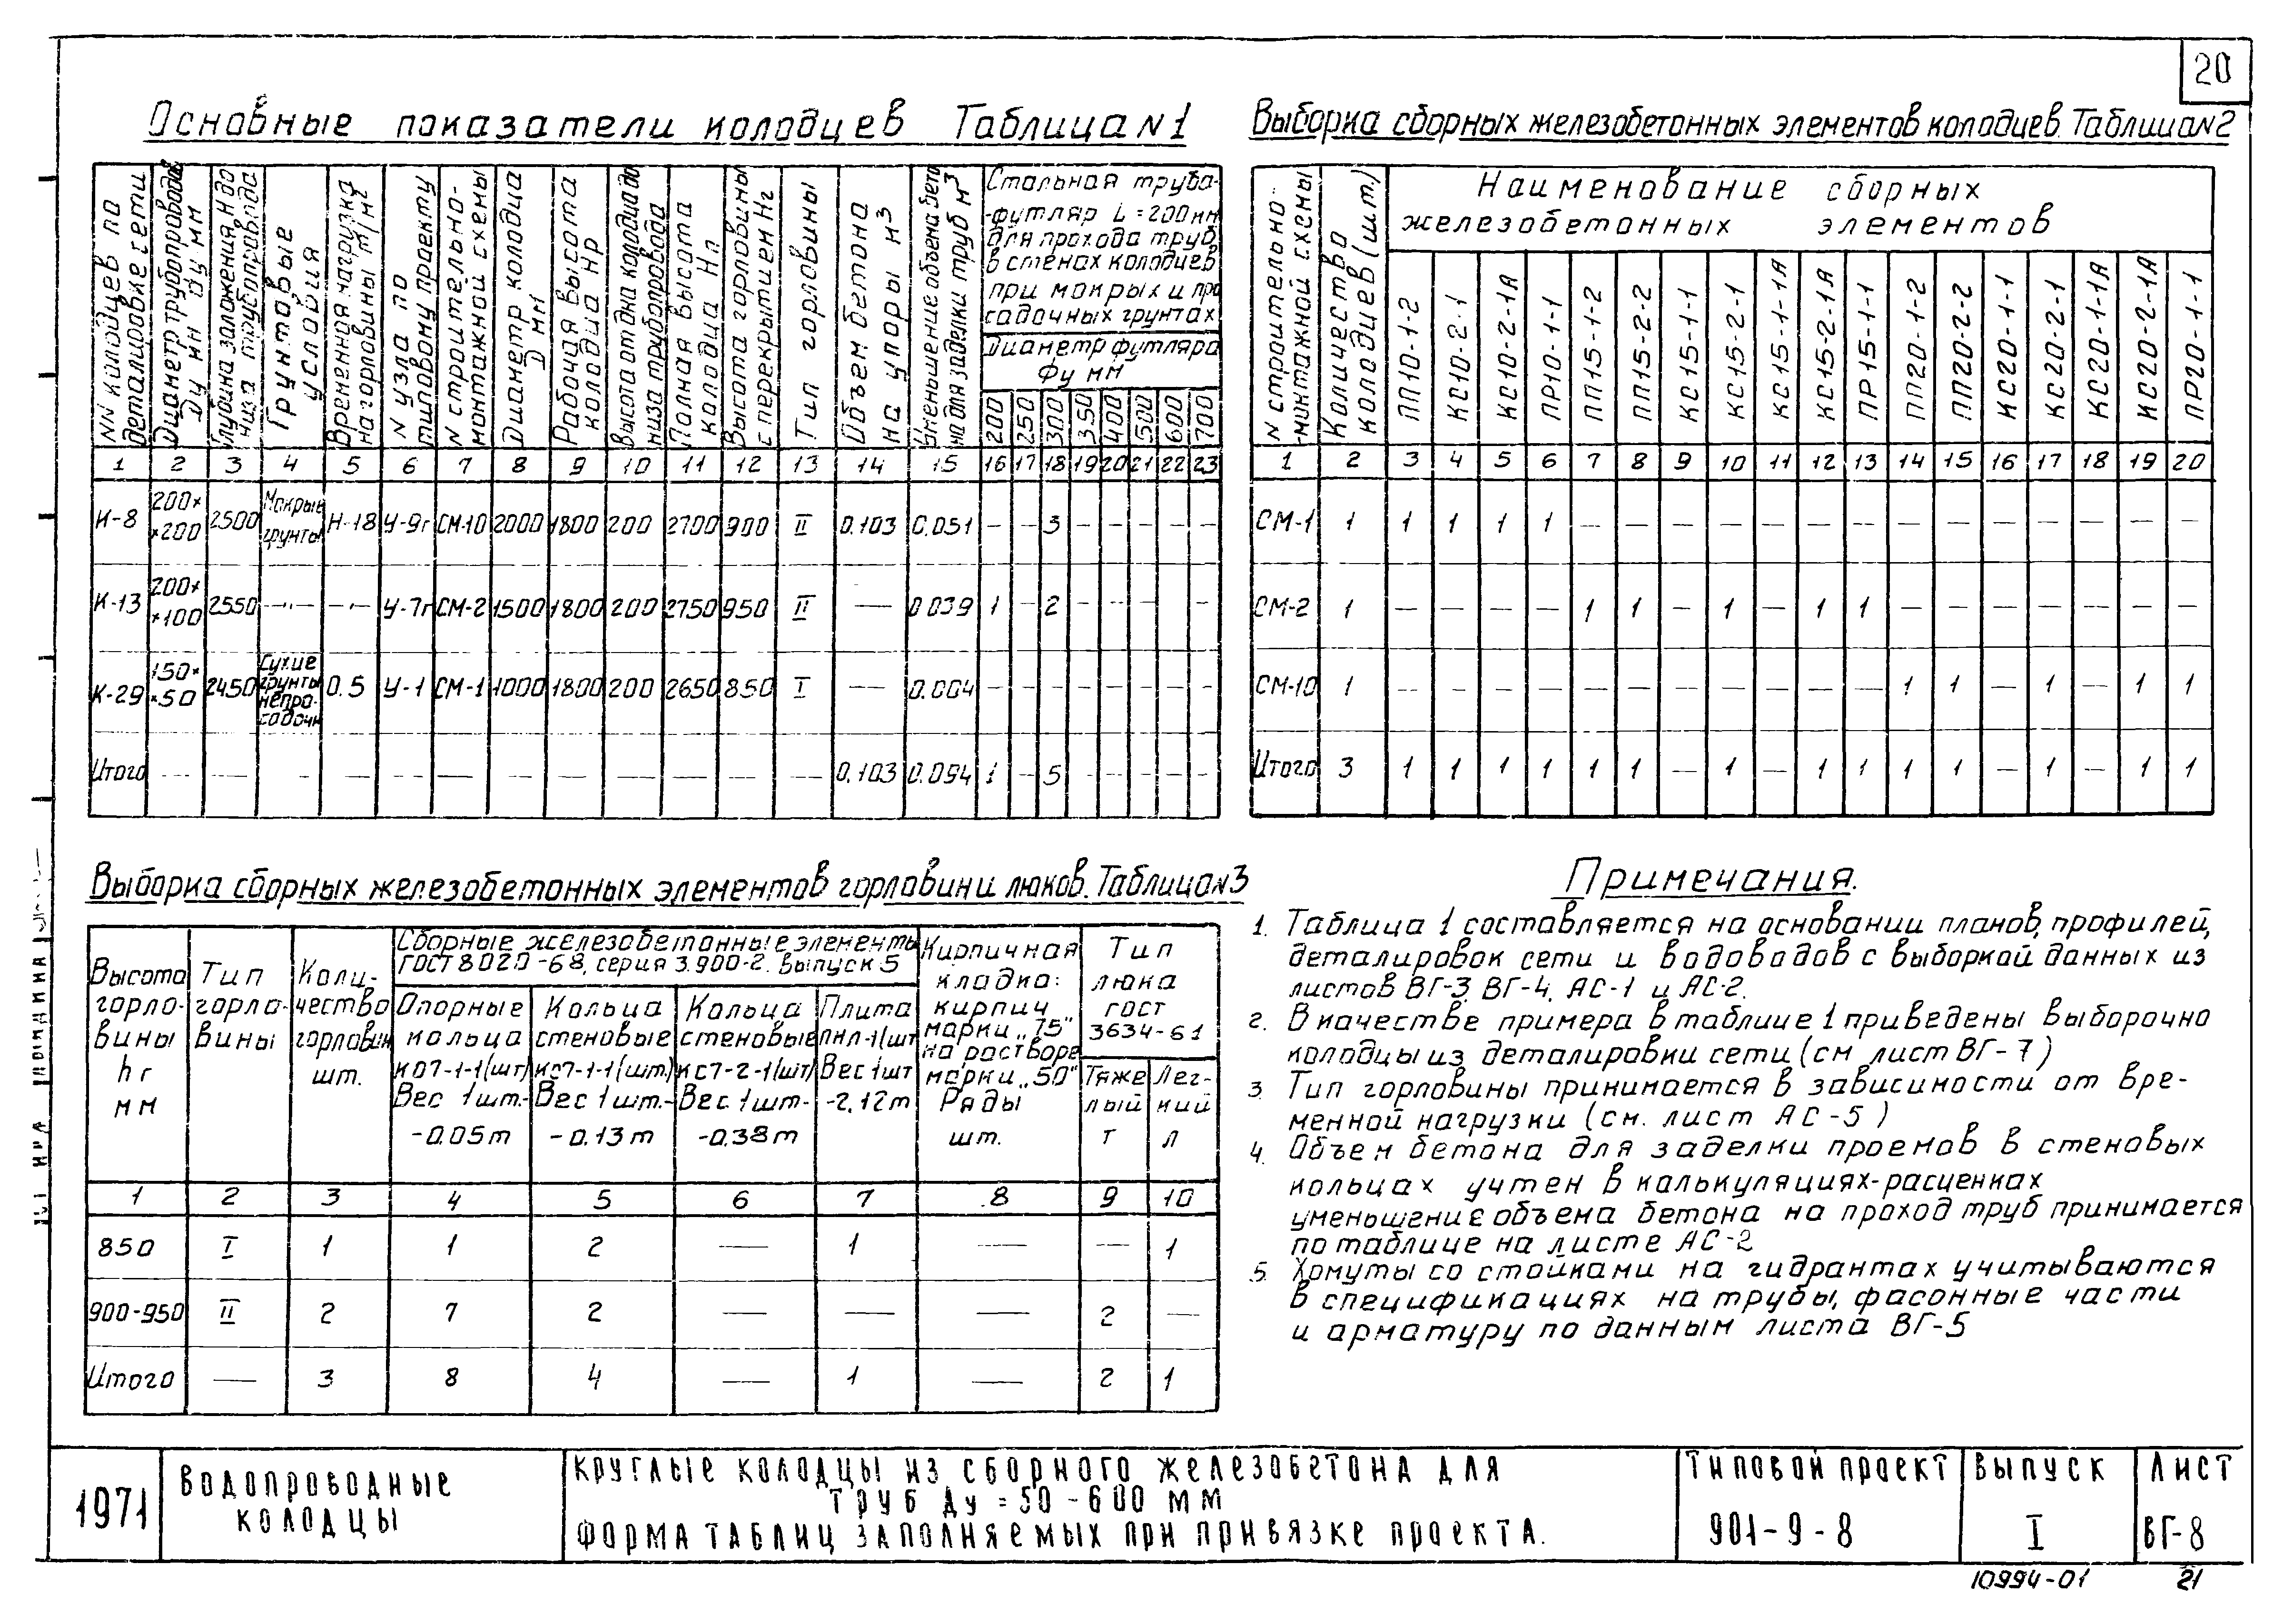 20
Основные показатели колодцев Таблица N1
NN колодцев по деталировке сети
Диаметр трубопроводов Ду мм Ду мм
Глубина заложения Н до низа трубопровода
Грунтовые условия
Временная нагрузка на горловины т/м²
N узла по типовому проекту
N строительно-монтажной схемы
Диаметр колодца D мм
Рабочая высота колодца Нр
Высота от дна колодца до низа трубопровода
Полная высота колодца Нп.
Высота горловины с перекрытием Нг
Тип горловины
Объем бетона на упоры м³
Уменьшение объема бетона для заделки труб м³
Стальная труба-
-футляр L=200мм
для прохода труб
в стенах колодцев
при мокрых и про
садочных грунтах
Диаметр футляра
Фу мм
200 250 300 350 400 500 600 700
1 2 3 4 5 6 7 8 9 10 11 12 13 14 15 16 17 18 19 20 21 22 23
К-8 200× ×200 2500 Мокрые грунты Н-18 У-9г СМ-10 2000 1800 200 2700 900 II 0.103 0.051 — — 3 — — — — —
К-13 200× ×100 2550 —"— —"— У-7г СМ-2 1500 1800 200 2750 950 II — 0.039 1 — 2 — — — — —
К-29 150× ×50 2450 Сухие грунты непро-садочн 0.5 У-1 СМ-1 1000 1800 200 2650 850 I — 0.004 — — — — — — — —
Итого — — — — — — — — — — — — 0.103 0.094 1 — 5 — — — — —
Выборка сборных железобетонных элементов колодцев. Таблица N2
N строительно-монтажной схемы
Количество колодцев (шт.)
Наименование сборных
железобетонных элементов
ПП10-1-2 КС10-2-1 КС10-2-1А ПР10-1-1 ПП15-1-2 ПП15-2-2 КС15-1-1 КС15-2-1 КС15-1-1А КС15-2-1А ПР15-1-1 ПП20-1-2 ПП20-2-2 КС20-1-1 КС20-2-1 КС20-1-1А КС20-2-1А ПР20-1-1
1 2 3 4 5 6 7 8 9 10 11 12 13 14 15 16 17 18 19 20
СМ-1 1 1 1 1 1 — — — — — — — — — — — — — —
СМ-2 1 — — — — 1 1 — 1 — 1 1 — — — — — — —
СМ-10 1 — — — — — — — — — — — 1 1 — 1 — 1 1
Итого 3 1 1 1 1 1 1 — 1 — 1 1 1 1 — 1 — 1 1
Выборка сборных железобетонных элементов горловин и люков. Таблица N3
Высота горло-вины hг мм
Тип горло-вины
Коли-чество горловин шт.
Сборные железобетонные элементы
ГОСТ 8020-68, серия 3.900-2. выпуск 5
Опорные кольца КО7-1-1(шт) Вес 1шт.- -0.05т
Кольца стеновые КС7-1-1(шт.) Вес 1шт.- -0.13т
Кольца стеновые КС7-2-1(шт) Вес 1шт- -0.38т
Плита ПНЛ-1(шт Вес 1шт -2.12т
Кирпичная кладка: кирпич марки „75" на растворе марки „50" Ряды шт.
Тип люка ГОСТ 3634-61
Тяже лый т
Лег-кий л
1 2 3 4 5 6 7 8 9 10
850 I 1 1 2 — 1 — — 1
900-950 II 2 7 2 — — — 2 —
Итого — 3 8 4 — 1 — 2 1
Примечания.
1. Таблица 1 составляется на основании планов, профилей,
деталировок сети и водоводов с выборкой данных из
листов ВГ-3, ВГ-4, АС-1 и АС-2.
2. В качестве примера в таблице 1 приведены выборочно
колодцы из деталировки сети (см лист ВГ-7)
3. Тип горловины принимается в зависимости от вре-
менной нагрузки (см. лист АС-5)
4. Объем бетона для заделки проемов в стеновых
кольцах учтен в калькуляциях-расценках
уменьшение объема бетона на проход труб принимается
по таблице на листе АС-2
5. Хомуты со стойками на гидрантах учитываются
в спецификациях на трубы, фасонные части
и арматуру по данным листа ВГ-5
1971
Водопроводные
колодцы
Круглые колодцы из сборного железобетона для
труб Ду=50-600 мм
Форма таблиц заполняемых при привязке проекта.
Типовой проект
901-9-8
Выпуск
I
Лист
ВГ-8
10994-01 21